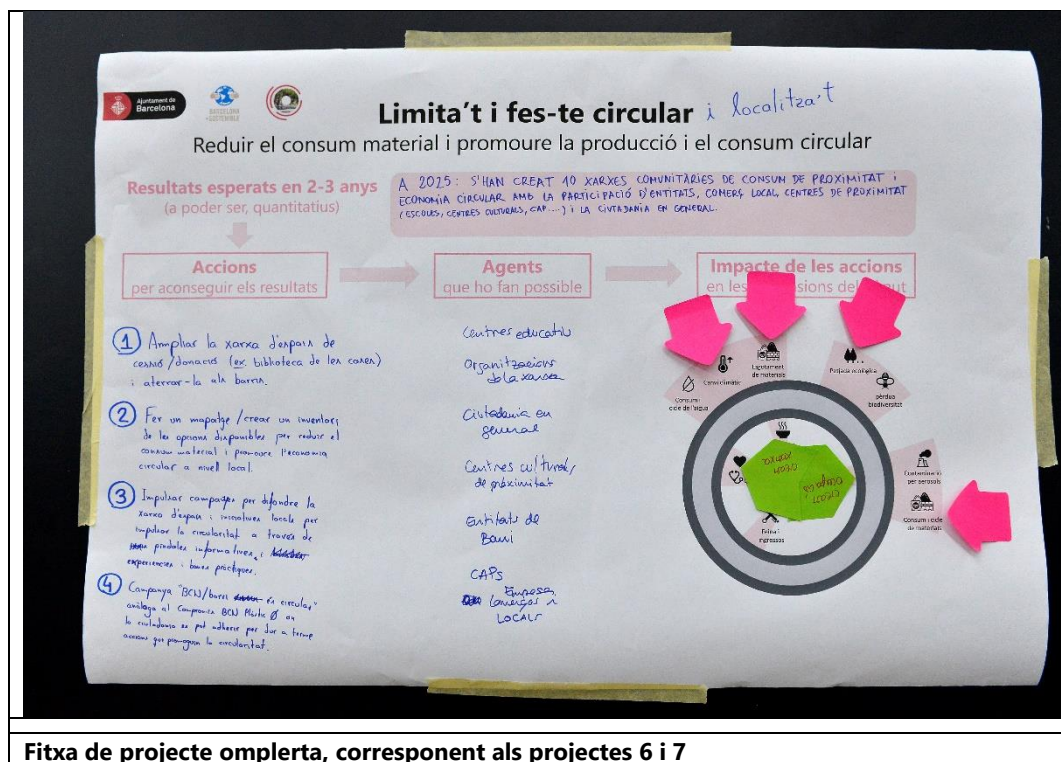 Ajuntament de
Barcelona
BARCELONA
+SOSTENIBLE
Limita't i fes-te circular i localitza't
Reduir el consum material i promoure la producció i el consum circular
Resultats esperats en 2-3 anys
(a poder ser, quantitatius)
A 2025: S'HAN CREAT 10 XARXES COMUNITÀRIES DE CONSUM DE PROXIMITAT I
ECONOMIA CIRCULAR AMB LA PARTICIPACIÓ D'ENTITATS, COMERÇ LOCAL, CENTRES DE PROXIMITAT
(ESCOLES, CENTRES CULTURALS, CAP....) i LA CIUTADANIA EN GENERAL.
Accions
per aconseguir els resultats
Agents
que ho fan possible
Impacte de les accions
en les
① Ampliar la xarxa d'espais de
cessió/donació (ex. biblioteca de les coses)
i aterrar-la als barris.
② Fer un mapatge/crear un inventari
de les opcions disponibles per reduir el
consum material i promoure l'economia
circular a nivell local.
③ Impulsar campanyes per difondre la
xarxa d'espais i iniciatives locals per
impulsar la circularitat a través de
píndoles informatives, i
experiències i bones pràctiques.
④ Campanya "BCN/barri és circular"
anàloga al Compromís BCN Plàstic Ø on
la ciutadania es pot adherir per dur a terme
accions que promoguin la circularitat.
Centres educatius
Organitzacions
de la xarxa
Ciutadania en
general
Centres culturals
de proximitat
Entitats de
Barri
CAPs
Empreses
Comerços
LOCALS
Canvi climàtic
Esgotament
de materials
Petjada ecològica
pèrdua
biodiversitat
Consum i
cicle de l'aigua
Contaminació
per aerosols
Consum i cicle
de materials
Feina i
ingressos
Fitxa de projecte omplerta, corresponent als projectes 6 i 7